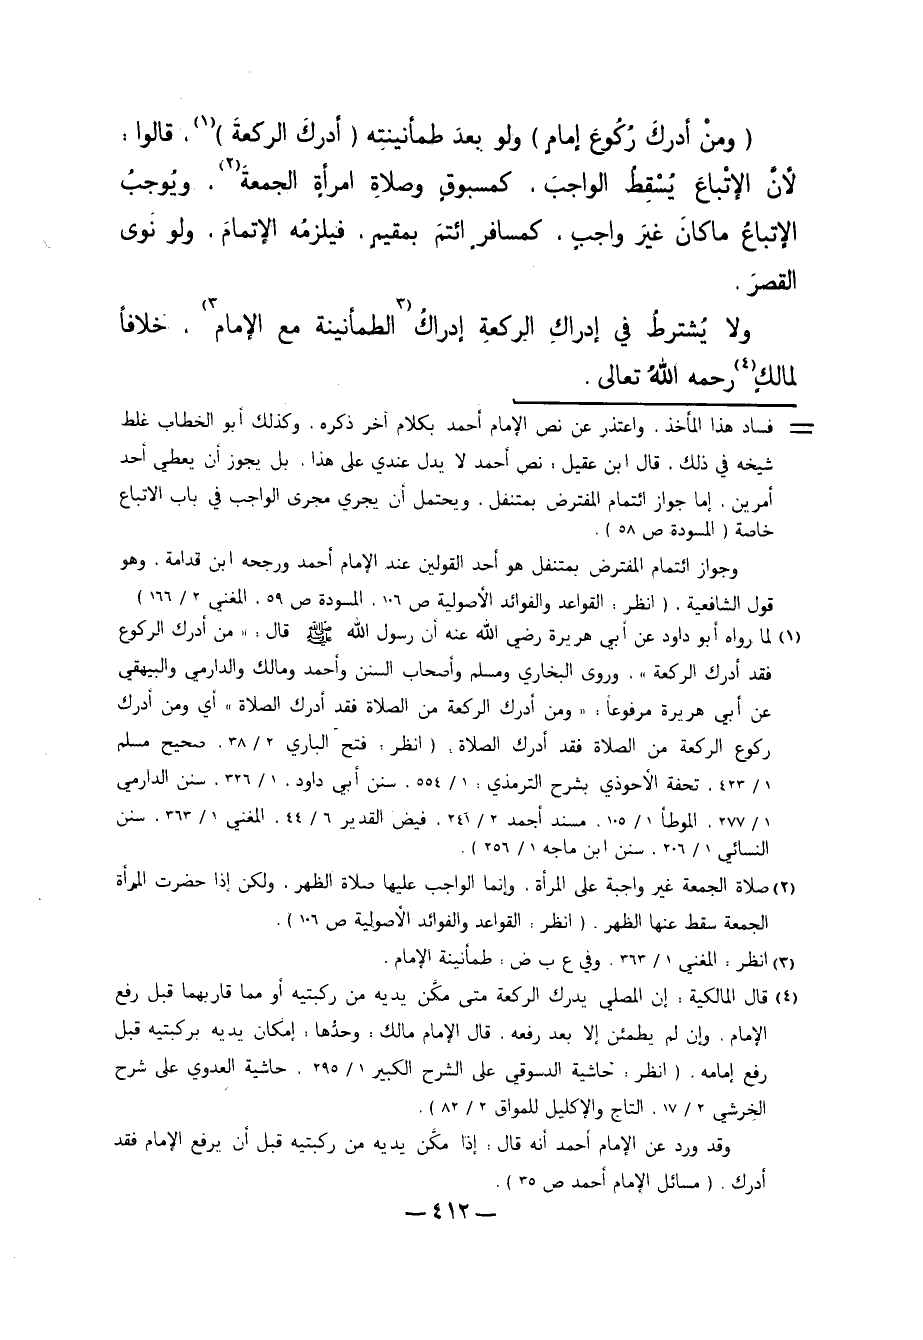 ( ومنْ أدركَ رُكُوعَ إمامٍ ) ولو بعدَ طمأنينتِه ( أدركَ الركعةَ )(١) ، قالوا :
لأنَّ الإتْباعَ يُسْقِطُ الواجبَ ، كمسبوقٍ وصلاةِ امرأةٍ الجمعةَ(٢) ، ويُوجبُ
الإتباعُ ماكانَ غيرَ واجبٍ ، كمسافرٍ ائتمَ بمقيمٍ ، فيلزمُه الإتمامَ ، ولو نَوى
القصرَ .
ولا يُشترطُ في إدراكِ الركعةِ إدراكُ (٣الطمأنينة مع الإمام٣) ، خلافاً
لمالكٍ(٤) رحمه اللهُ تعالى .
= فساد هذا المأخذ . واعتذر عن نص الإمام أحمد بكلام آخر ذكره . وكذلك أبو الخطاب غلط
شيخه في ذلك . قال ابن عقيل : نص أحمد لا يدل عندي على هذا . بل يجوز أن يعطي أحد
أمرين . إما جواز ائتمام المفترض بمتنفل . ويحتمل أن يجري مجرى الواجب في باب الاتباع
خاصة ( المسودة ص ٥٨ ) .
وجواز ائتمام المفترض بمتنفل هو أحد القولين عند الإمام أحمد ورجحه ابن قدامة . وهو
قول الشافعية . ( انظر : القواعد والفوائد الأصولية ص ١٠٦ . المسودة ص ٥٩ . المغني ٢ / ١٦٦ )
(١) لما رواه أبو داود عن أبي هريرة رضي الله عنه أن رسول الله ﷺ قال : « من أدرك الركوع
فقد أدرك الركعة » . وروى البخاري ومسلم وأصحاب السنن وأحمد ومالك والدارمي والبيهقي
عن أبي هريرة مرفوعاً : « ومن أدرك الركعة من الصلاة فقد أدرك الصلاة » أي ومن أدرك
ركوع الركعة من الصلاة فقد أدرك الصلاة . ( انظر : فتح الباري ٢ / ٣٨ . صحيح مسلم
١ / ٤٢٣ . تحفة الأحوذي بشرح الترمذي : ١ / ٥٥٤ . سنن أبي داود . ١ / ٣٢٦ . سنن الدارمي
١ / ٢٧٧ . الموطأ ١ / ١٠٥ . مسند أحمد ٢ / ٢٤٦ . فيض القدير ٦ / ٤٤ . المغني ١ / ٣٦٣ . سنن
النسائي ١ / ٢٠٦ . سنن ابن ماجه ١ / ٢٥٦ ) .
(٢) صلاة الجمعة غير واجبة على المرأة . وإنما الواجب عليها صلاة الظهر . ولكن إذا حضرت المرأة
الجمعة سقط عنها الظهر . ( انظر : القواعد والفوائد الأصولية ص ١٠٦ ) .
(٣) انظر : المغني ١ / ٣٦٣ . وفي ع ب ض : طمأنينة الإمام .
(٤) قال المالكية : إن المصلي يدرك الركعة متى مكَّن يديه من ركبتيه أو مما قاربهما قبل رفع
الإمام . وإن لم يطمئن إلا بعد رفعه . قال الإمام مالك : وحدُّها : إمكان يديه بركبتيه قبل
رفع إمامه . ( انظر : حاشية الدسوقي على الشرح الكبير ١ / ٢٩٥ . حاشية العدوي على شرح
الخرشي ٢ / ١٧ . التاج والإكليل للمواق ٢ / ٨٢ ) .
وقد ورد عن الإمام أحمد أنه قال : إذا مكَّن يديه من ركبتيه قبل أن يرفع الإمام فقد
أدرك . ( مسائل الإمام أحمد ص ٣٥ ) .
— ٤١٢ —